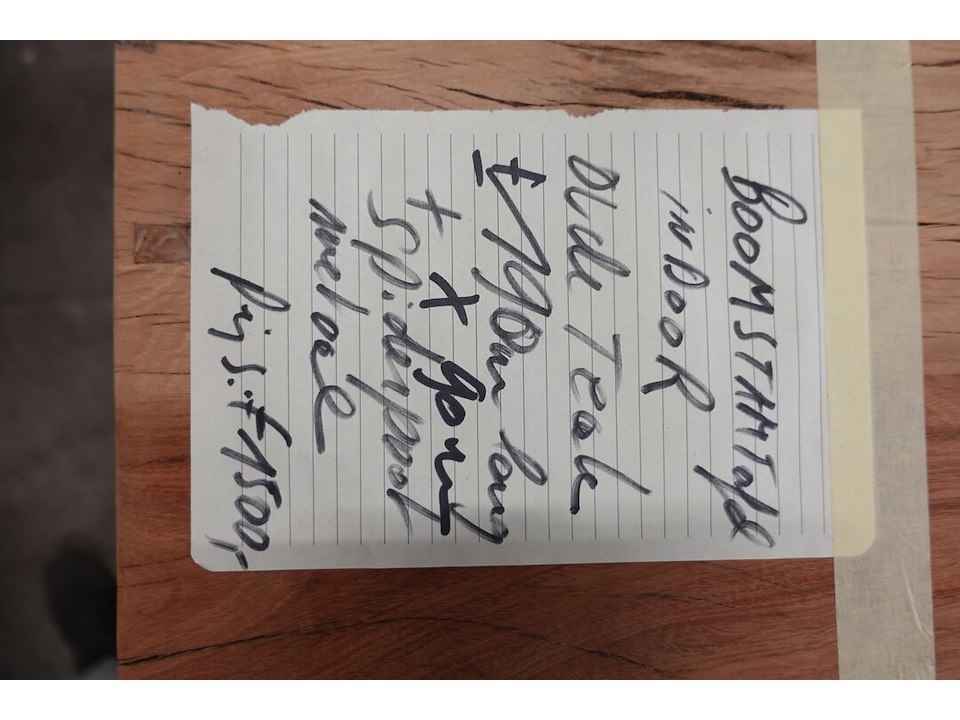 BOOMSTAMTafel
inDOOR
Oude Teak
lang
+ x 90m
spiderpoot
metaal
prijs: €1500,-